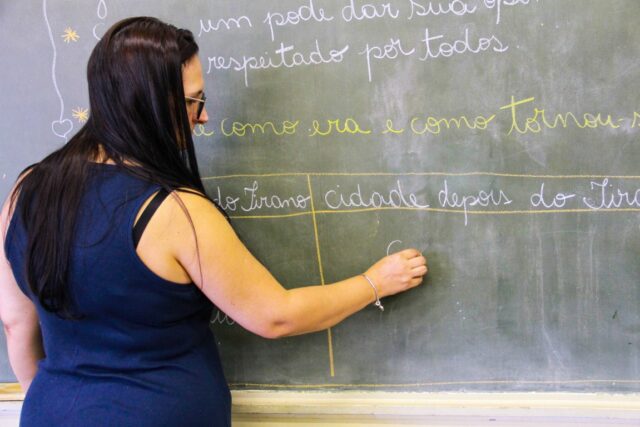 um pode dar sua
respeitado por todos.
como era e como tornou-s
do Tirano cidade depois do Tira